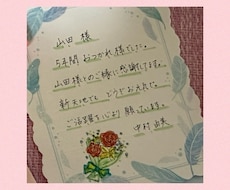 山田 様
5年間 おつかれ様でした。
山田様とのご縁に感謝してます。
新天地でも どうぞお元気で。
ご活躍を心より 願っています。
中村 由美